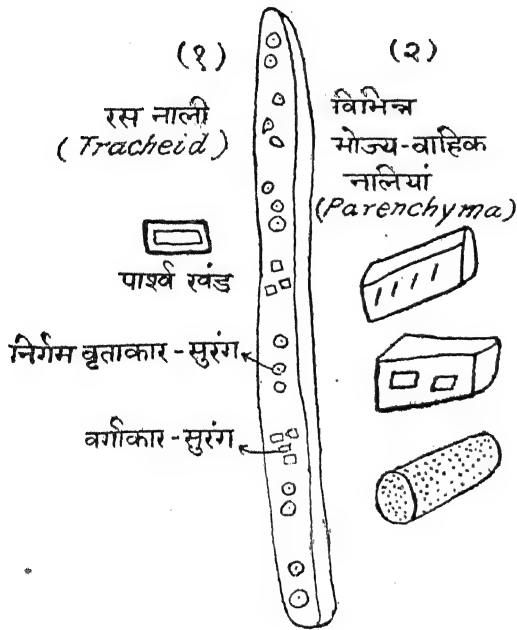 (१)
रस नाली
(Tracheid)
पार्श्व खंड
निर्गम वृताकार-सुरंग
वर्गाकार-सुरंग
(२)
विभिन्न
भोज्य-वाहिक
नालियां
(Parenchyma)